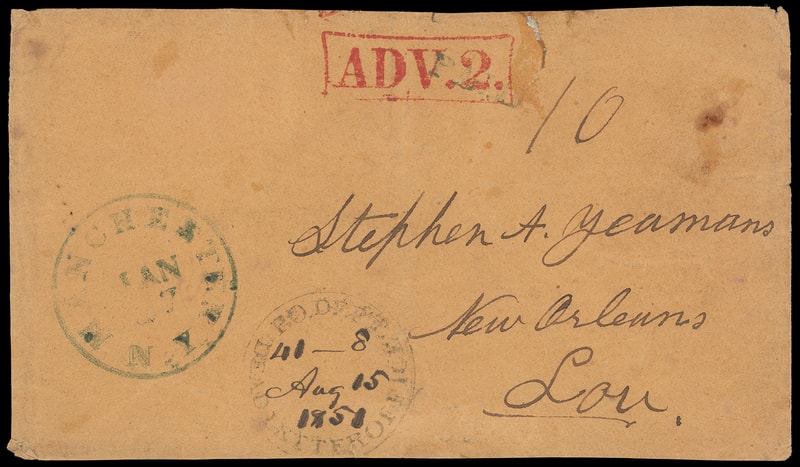 ADV.2.
10
Stephen A. Yeamans
New Orleans
Lou.
MANCHESTER N.Y.
JAN
7
P.O. DEPT.
DEAD LETTER OFFICE
41 — 8
Aug 15
1851